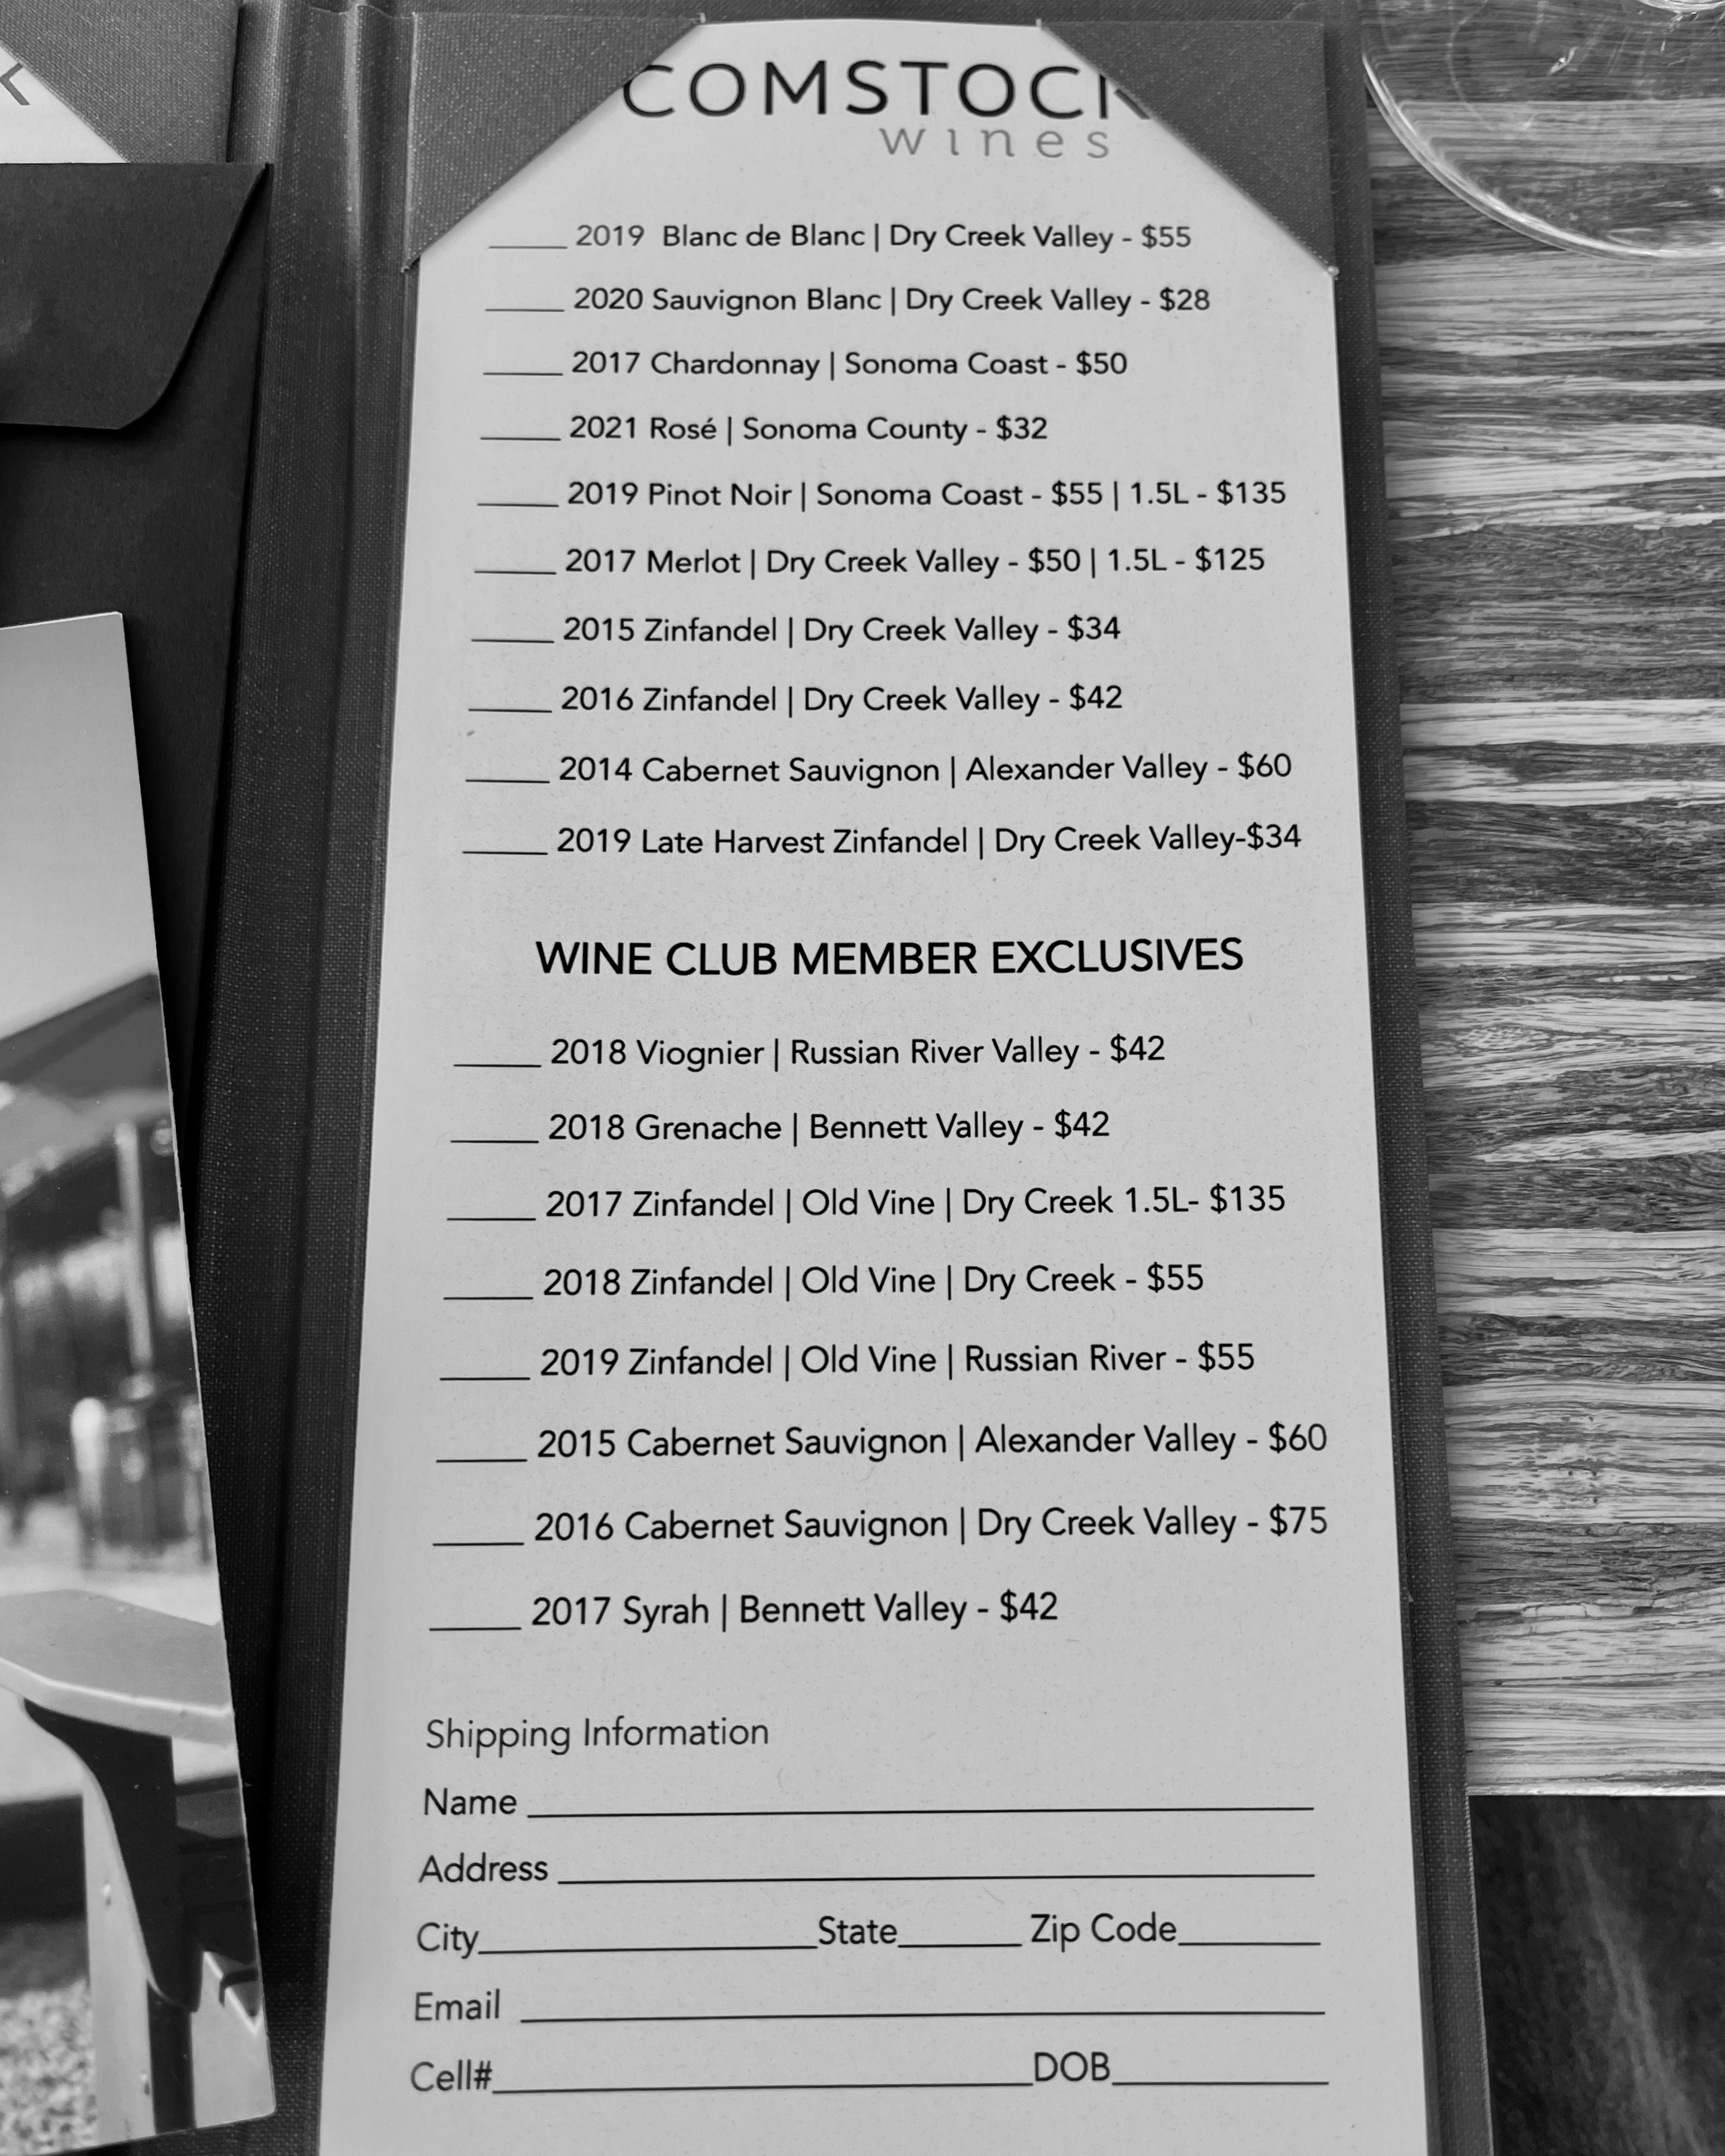 COMSTOCK
wines
_____ 2019 Blanc de Blanc | Dry Creek Valley - $55
_____ 2020 Sauvignon Blanc | Dry Creek Valley - $28
_____ 2017 Chardonnay | Sonoma Coast - $50
_____ 2021 Rosé | Sonoma County - $32
_____ 2019 Pinot Noir | Sonoma Coast - $55 | 1.5L - $135
_____ 2017 Merlot | Dry Creek Valley - $50 | 1.5L - $125
_____ 2015 Zinfandel | Dry Creek Valley - $34
_____ 2016 Zinfandel | Dry Creek Valley - $42
_____ 2014 Cabernet Sauvignon | Alexander Valley - $60
_____ 2019 Late Harvest Zinfandel | Dry Creek Valley-$34
WINE CLUB MEMBER EXCLUSIVES
_____ 2018 Viognier | Russian River Valley - $42
_____ 2018 Grenache | Bennett Valley - $42
_____ 2017 Zinfandel | Old Vine | Dry Creek 1.5L- $135
_____ 2018 Zinfandel | Old Vine | Dry Creek - $55
_____ 2019 Zinfandel | Old Vine | Russian River - $55
_____ 2015 Cabernet Sauvignon | Alexander Valley - $60
_____ 2016 Cabernet Sauvignon | Dry Creek Valley - $75
_____ 2017 Syrah | Bennett Valley - $42
Shipping Information
Name ____________________
Address ____________________
City__________State_____ Zip Code_____
Email ____________________
Cell#_______________DOB_______